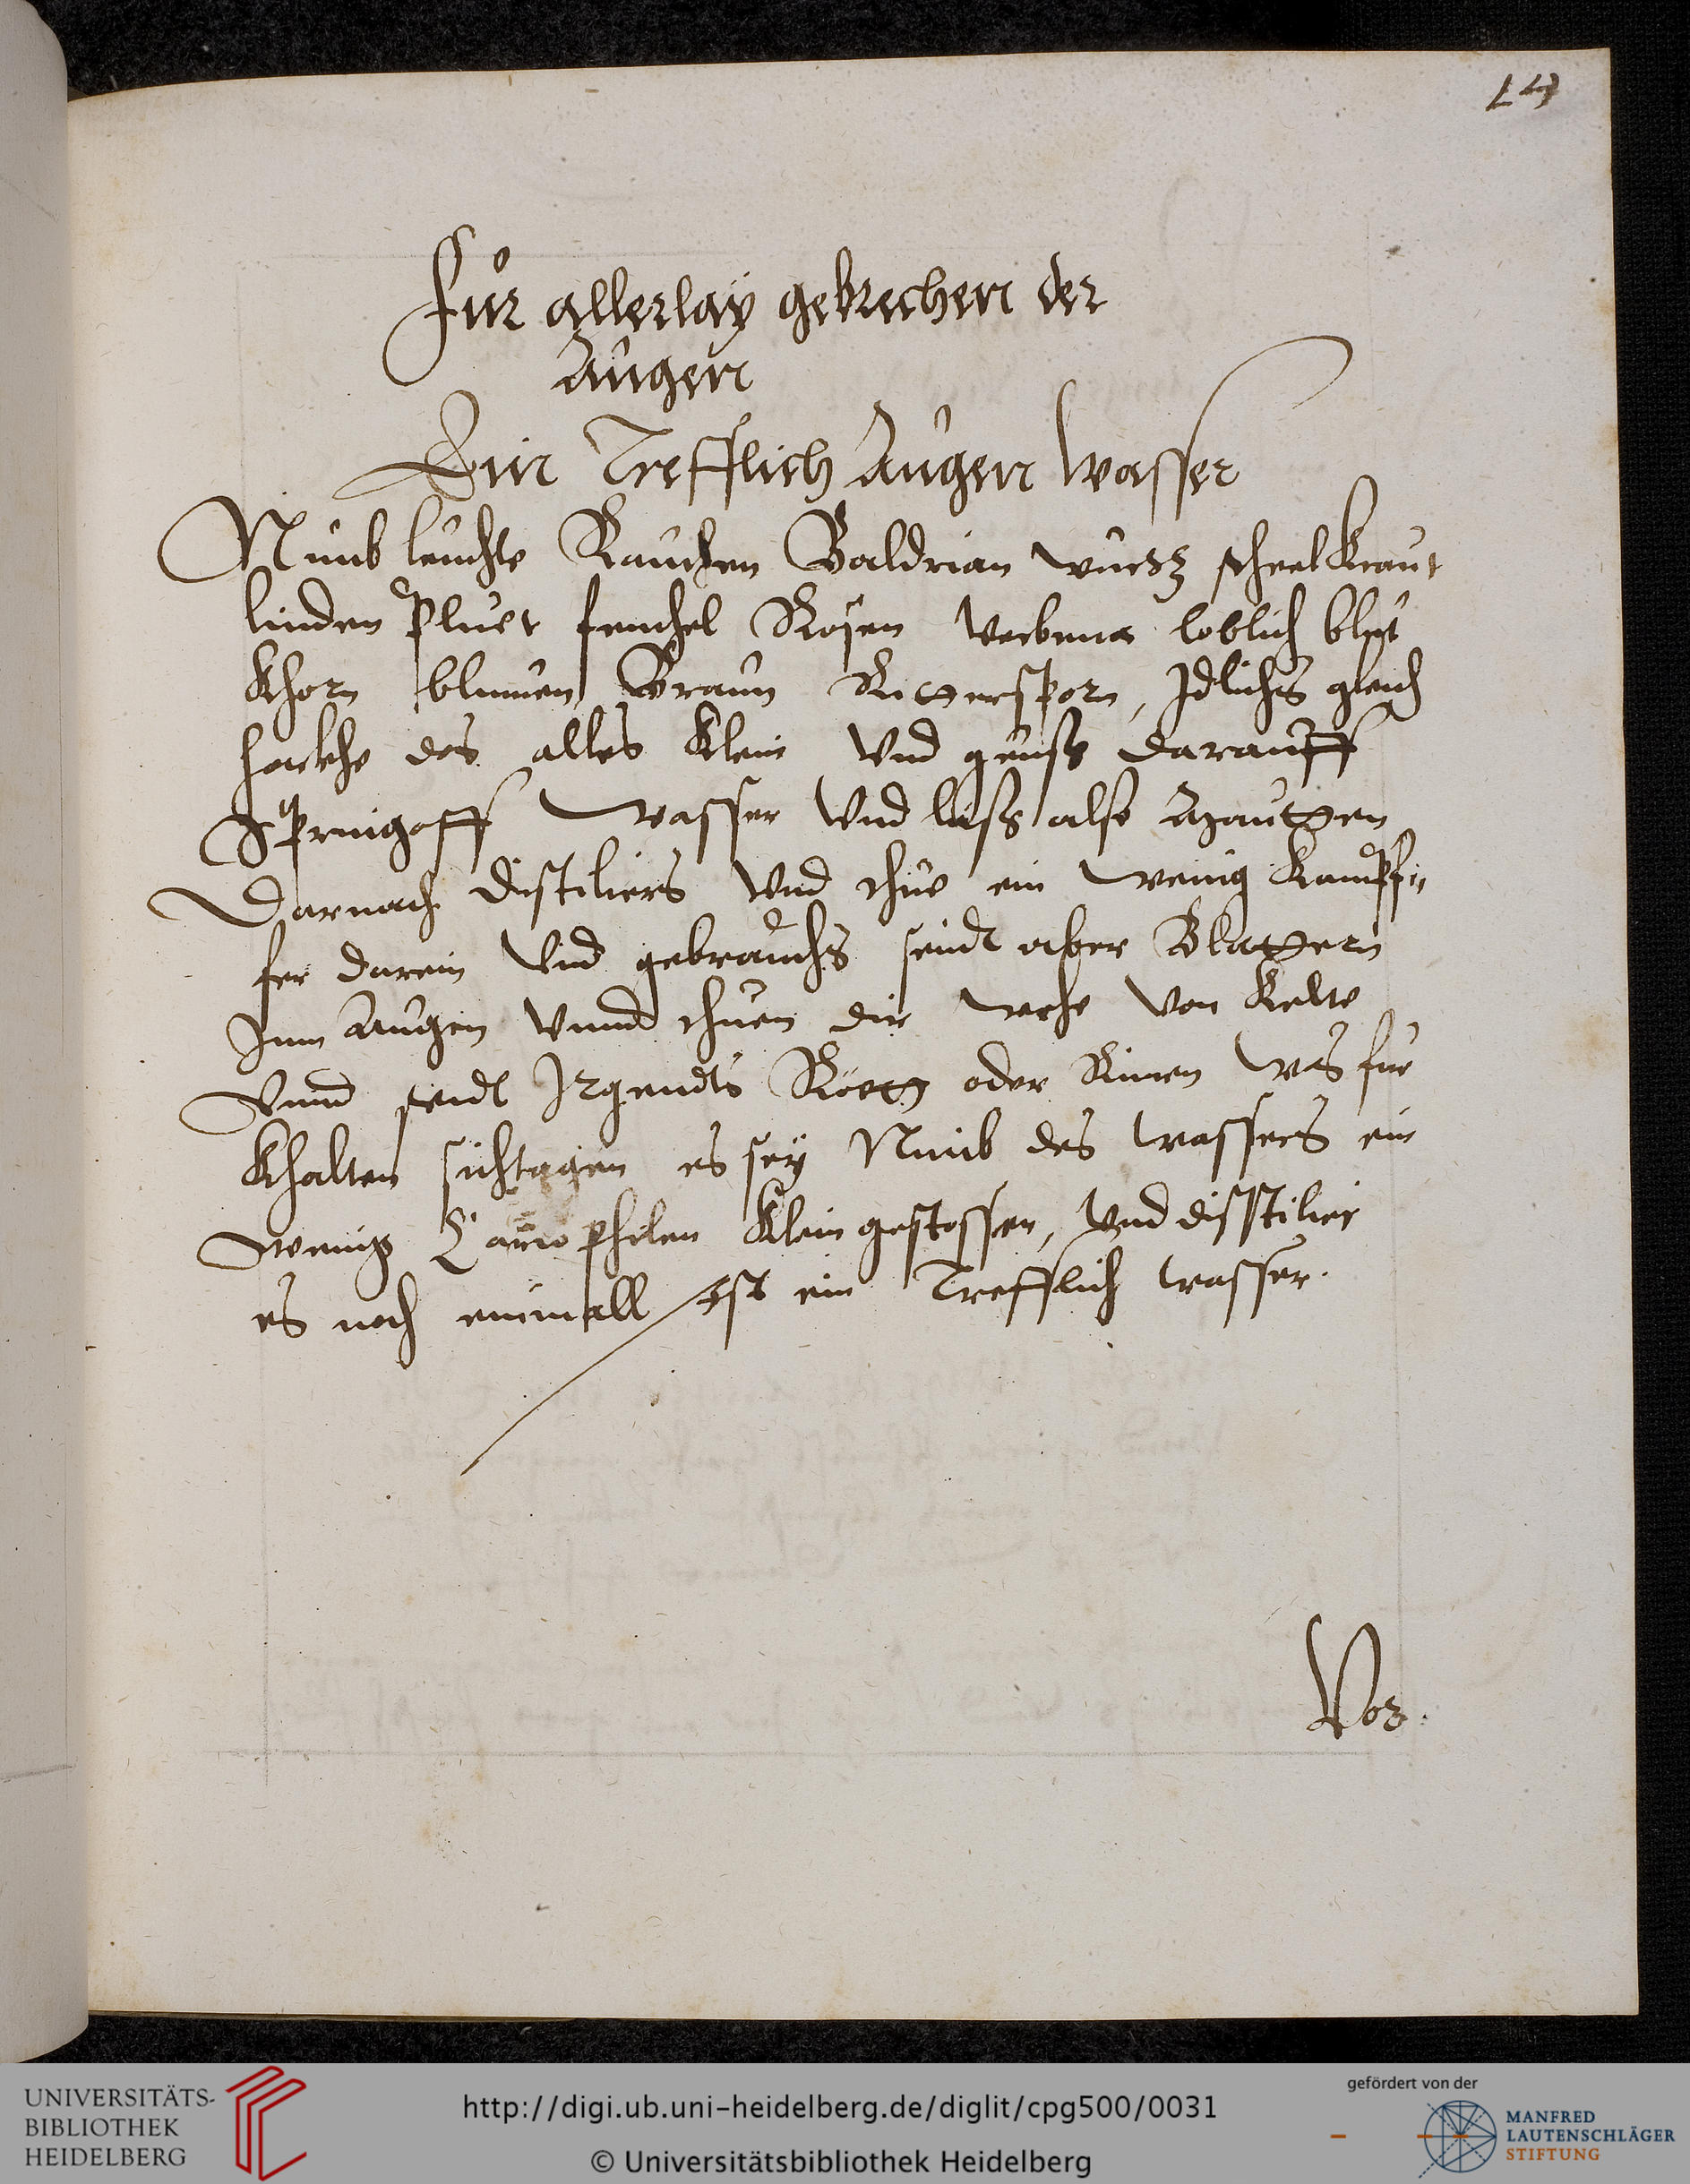 14
Für allerlaÿ gebrechen der
Augen
Ein Trefflich Augen Wasser
Nimb leuchte Rauthen Baldrian wurtz schelkraut
linden Pluet fenchel Rosen Verbena loblich blut
Khorn blumen Braun Rittersporn, Idlichs gleich
hackhe des alles klein Vnd geuß darauff
wasser Vnd laß also
Darnach distiliers Vnd thue ein wenig Kampf=
fer darein Vnd gebrauchs seindt aber Blattern
Inn Augen Vnnd thuen dir wehe Von Kelte
Vnnd seindt Irgendts Röett oder Rinen Was fur
Khalten sichtagen es seÿ Nimb des wassers ein
wenig klein gestossen, Vnd disstilier
es noch einmall Ist ein Trefflich wasser.
Vor
UNIVERSITÄTS-
BIBLIOTHEK
HEIDELBERG
http://digi.ub.uni-heidelberg.de/diglit/cpg500/0031
© Universitätsbibliothek Heidelberg
gefördert von der
MANFRED
LAUTENSCHLÄGER
STIFTUNG